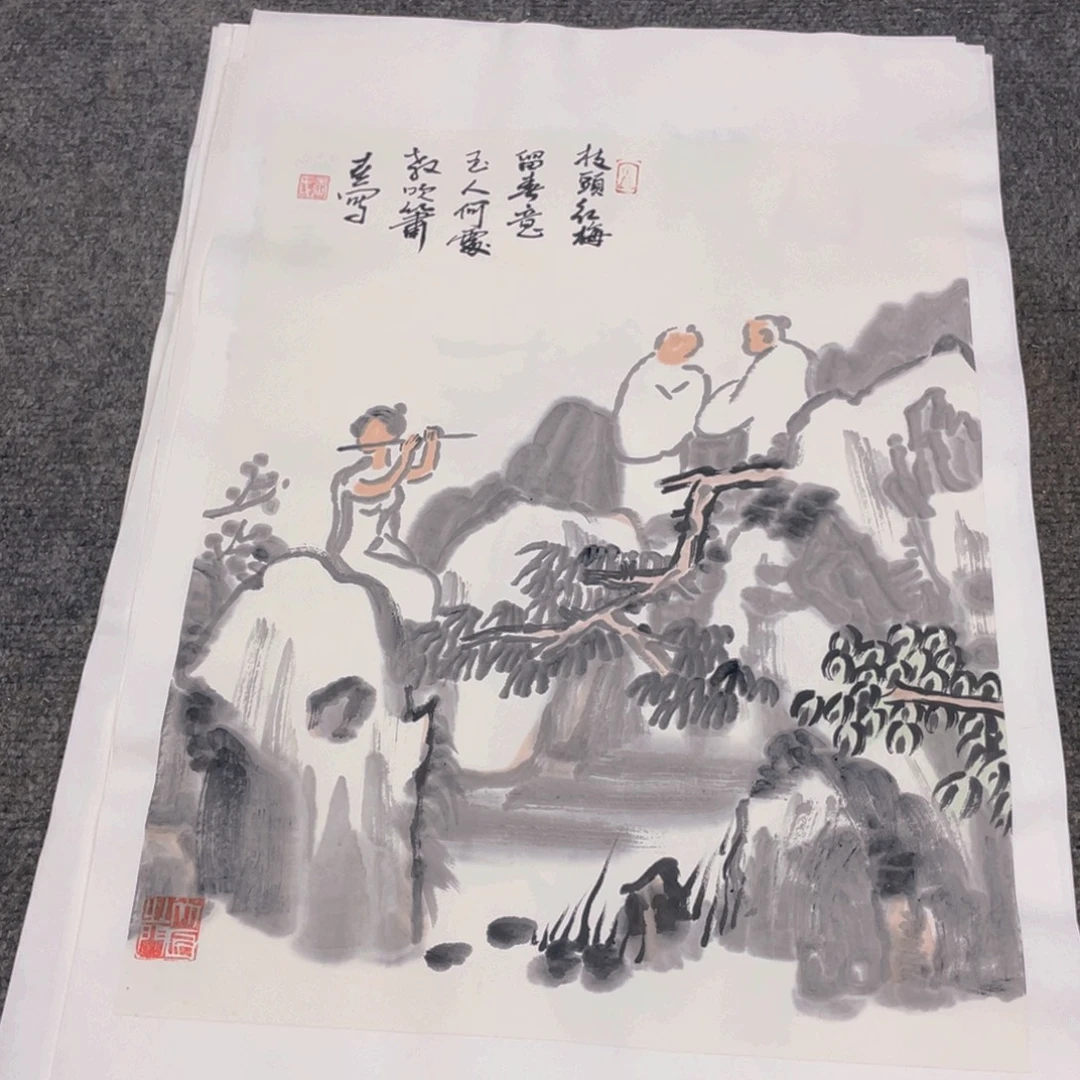 枝頭紅梅
留春意
玉人何處
教吹簫